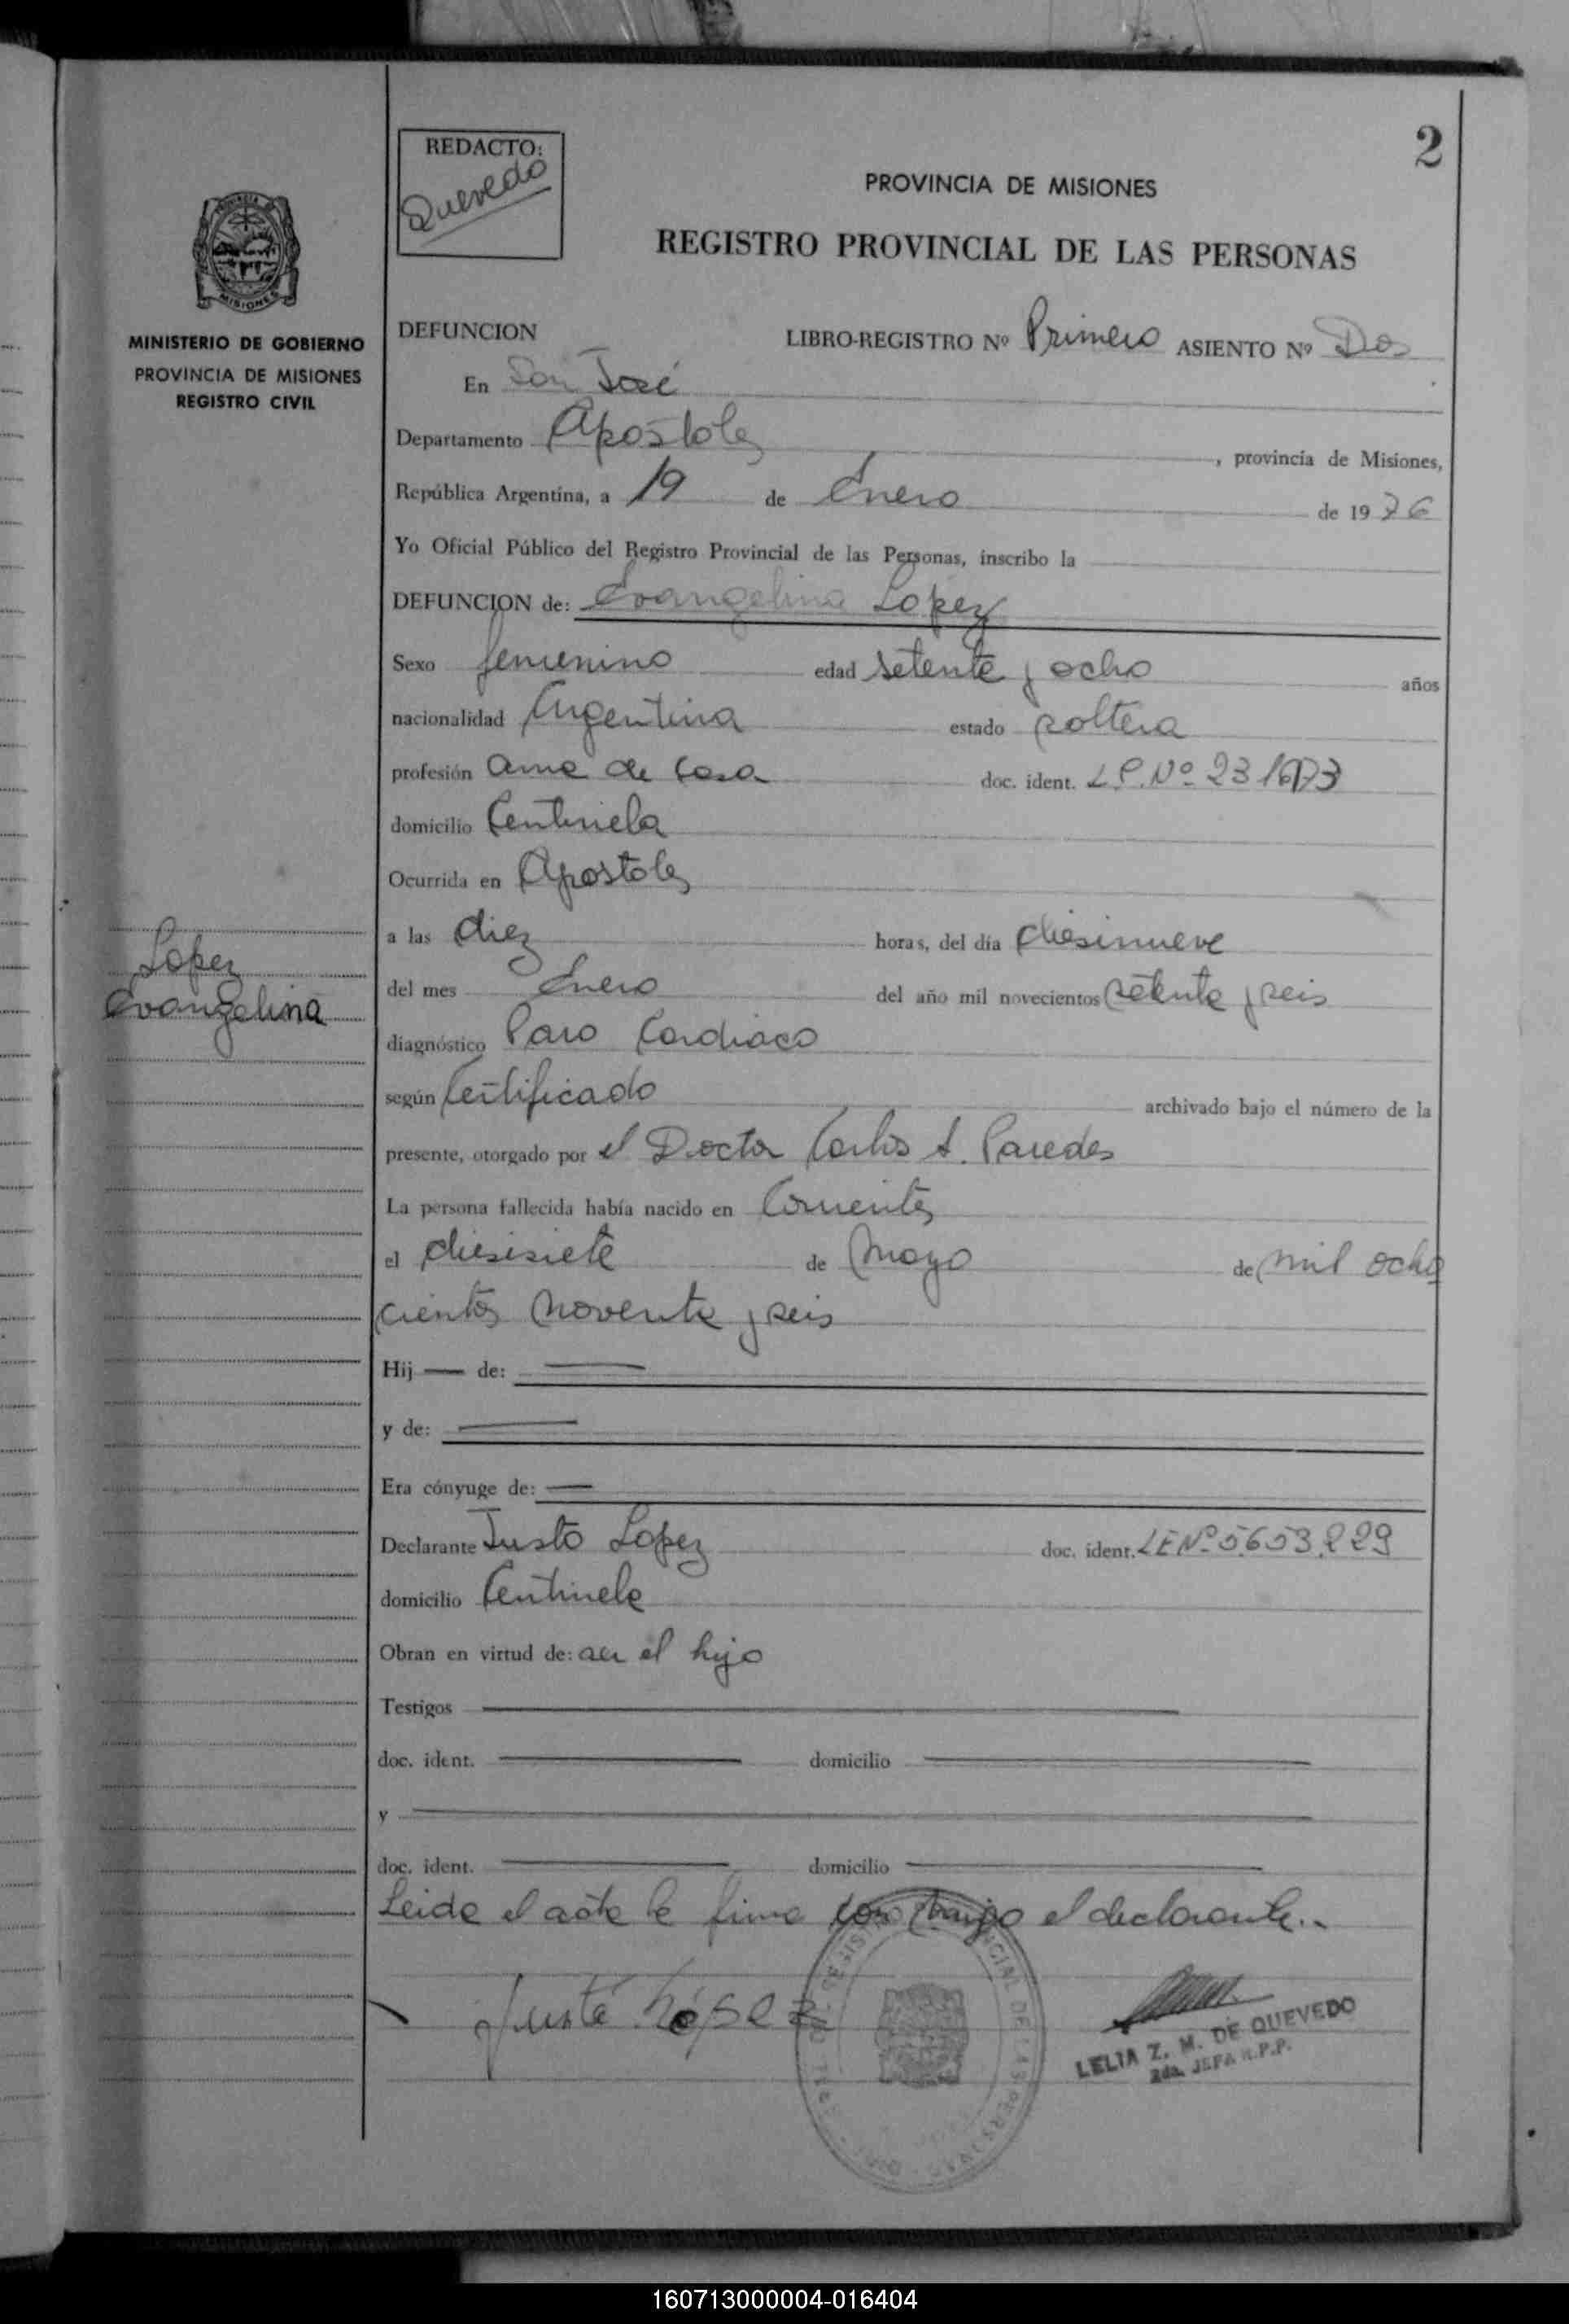 2
REDACTO:
Quevedo
PROVINCIA DE MISIONES
REGISTRO PROVINCIAL DE LAS PERSONAS
MINISTERIO DE GOBIERNO
PROVINCIA DE MISIONES
REGISTRO CIVIL
DEFUNCION LIBRO-REGISTRO Nº Primero ASIENTO Nº Dos
En San José
Departamento Apostoles, provincia de Misiones,
República Argentina, a 19 de Enero de 1976
Yo Oficial Público del Registro Provincial de las Personas, inscribo la
DEFUNCION de: Evangelina Lopez
Sexo femenino edad setenta y ocho años
nacionalidad Argentina estado soltera
profesión ama de casa doc. ident. L.C.Nº
domicilio Centinela
Ocurrida en Apostoles
a las diez horas, del día diesinueve
del mes Enero del año mil novecientos setenta y seis
Lopez
Evangelina
diagnóstico Paro Cardiaco
según Certificado archivado bajo el número de la
presente, otorgado por el Doctor Carlos A. Paredes
La persona fallecida había nacido en Corrientes
el diesisiete de Mayo de mil ocho
cientos noventa y seis
Hij — de: —
y de: —
Era cónyuge de: —
Declarante Justo Lopez doc. ident. LE Nº 5.653.229
domicilio Centinela
Obran en virtud de: ser el hijo
Testigos
doc. ident. domicilio
y
doc. ident. domicilio
Leida el acta la firma conmigo el declarante..
Justo López
LELIA Z. M. DE QUEVEDO
2da. JEFA R.P.P.
160713000004-016404